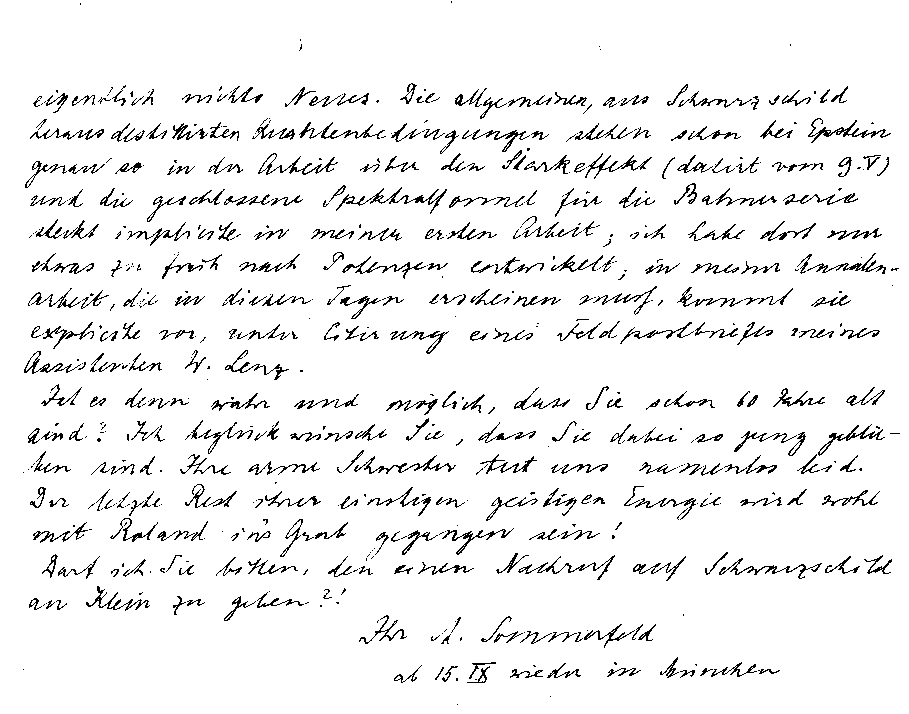 eigentlich nichts Neues. Die allgemeinen, aus Schwarzschild
heraus destillirten Quantenbedingungen stehen schon bei Epstein
genau so in der Arbeit über den Starkeffekt (datirt vom 9.V)
und die geschlossene Spektralformel für die Balmerserie
steckt implicite in meiner ersten Arbeit; ich habe dort nur
etwas zu früh nach Potenzen entwickelt; in meiner Annalen-
arbeit, die in diesen Tagen erscheinen muss, kommt sie
explicite vor, unter Citirung eines Feldpostbriefes meines
Assistenten W. Lenz.
Ist es denn wahr und möglich, dass Sie schon 60 Jahre alt
sind? Ich beglückwünsche Sie, dass Sie dabei so jung geblie-
ben sind. Ihre arme Schwester tut uns namenlos leid.
Der letzte Rest ihrer einstigen geistigen Energie wird wohl
mit Roland in's Grab gegangen sein!
Darf ich Sie bitten, den einen Nachruf auf Schwarzschild
an Klein zu geben?!
Ihr A. Sommerfeld
ab 15. IX wieder in München